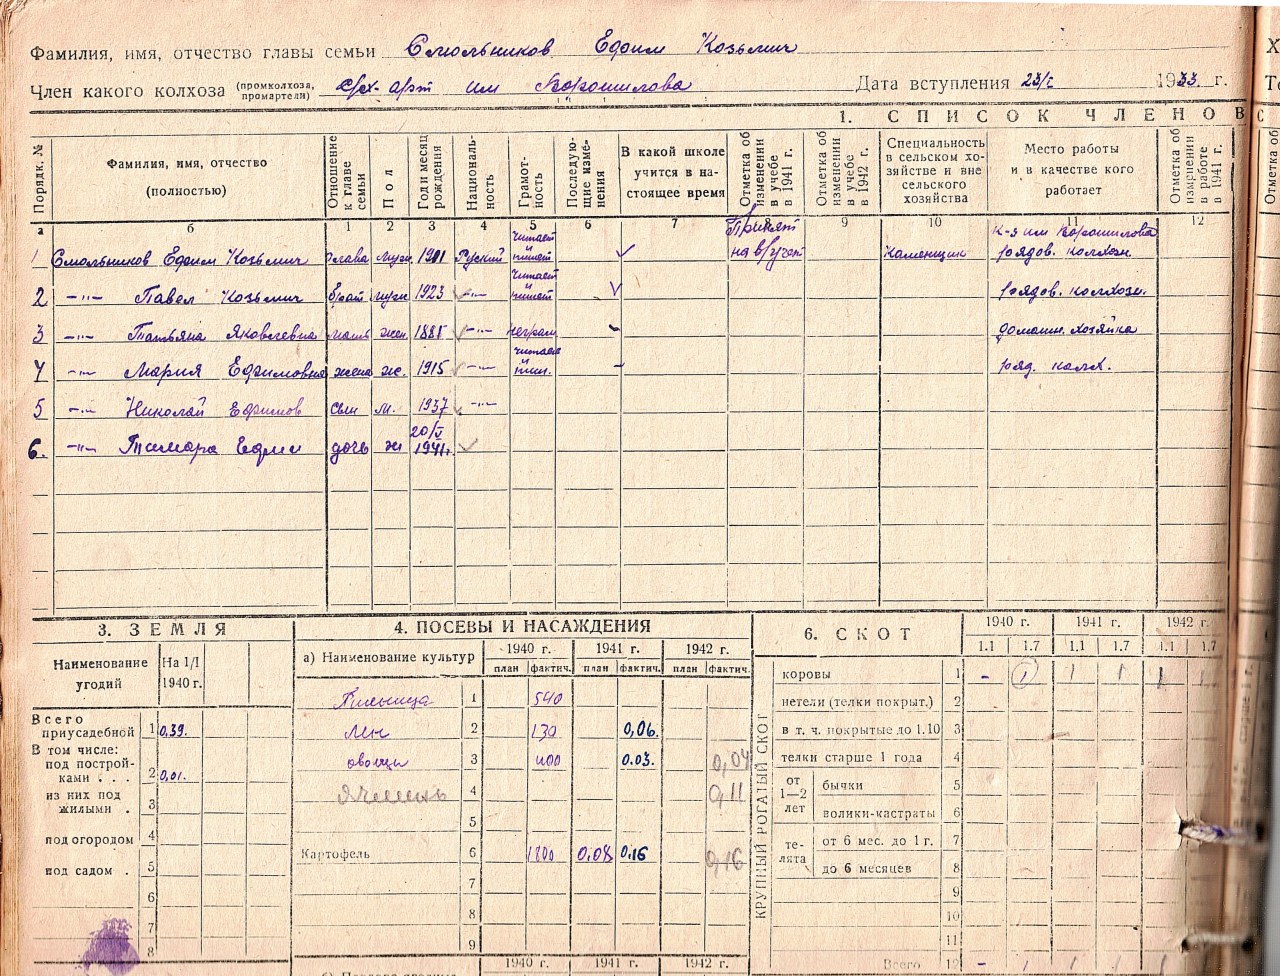 Фамилия, имя, отчество главы семьи Смольников Ефим Козьмич
Член какого колхоза (промколхоза, промартели) с/х-арт им Ворошилова Дата вступления 23/I 1933 г.
1. СПИСОК ЧЛЕНОВ С
Порядк. № Фамилия, имя, отчество (полностью) Отношение к главе семьи Пол Год и месяц рождения Националь-ность Грамот-ность Последую-щие изме-нения В какой школе учится в на-стоящее время Отметка об изменении в учебе в 1941 г. Отметка об изменении в учебе в 1942 г. Специальность в сельском хо-зяйстве и вне сельского хозяйства Место работы и в качестве кого работает Отметка об изменении в работе в 1941 г.
а б 1 2 3 4 5 6 7 8 9 10 11 12
1 Смольников Ефим Козьмич глава муж. 1911 Русский читает и пишет Принят на в/учет Каменщик к-з им Ворошилова рядов. колхозн.
2 -"- Павел Козьмич брат муж 1923 -"- читает и пишет рядов. колхозн.
3 -"- Татьяна Яковлевна мать жен. 1881 -"- неграм. - домашн. хозяйка
4 -"- Мария Ефимовна жена ж. 1915 -"- читает и пиш. - ряд. колх.
5 -"- Николай Ефимов сын м. 1937 -"-
6. -"- Тамара Ефим дочь ж 20/V 1941г.
3. ЗЕМЛЯ
Наименование угодий На 1/I 1940 г.
Всего приусадебной 1 0,39.
В том числе: под построй-ками . . . 2 0,01.
из них под жилыми . 3
под огородом 4
под садом . 5
6
7
8
4. ПОСЕВЫ И НАСАЖДЕНИЯ
а) Наименование культур 1940 г. 1941 г. 1942 г.
план фактич. план фактич. план фактич.
Пшеница 1 540
лен 2 130 0,06.
овощи 3 400 0.03. 0,04
Ячмень 4 0,11
5
Картофель 6 1800 0.08 0,16 0,16
7
8
9
1940 г. 1941 г. 1942 г.
6. СКОТ
1940 г. 1941 г. 1942 г.
1.1 1.7 1.1 1.7 1.1 1.7
КРУПНЫЙ РОГАТЫЙ СКОТ
коровы 1 - 1 1 1 1 1
нетели (телки покрыт.) 2
в т. ч. покрытые до 1.10 3
телки старше 1 года 4
от 1—2 лет бычки 5
волики-кастраты 6
те-лята от 6 мес. до 1 г. 7
до 6 месяцев 8
9
10
11
Всего 12 - 1 1 1 1
Х
То
Отметка об